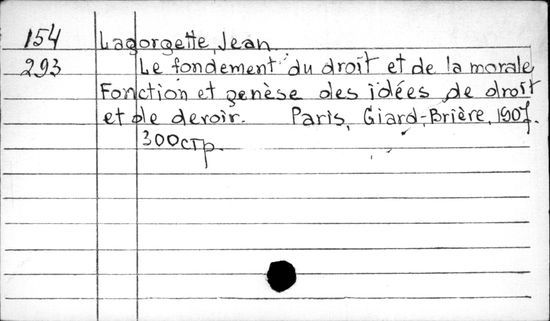 154 Lagorgette, Jean
293 Le fondement du droit et de la morale
Fonction et genèse des idées de droit
et de devoir. Paris, Giard-Brière, 1907.
300 стр.